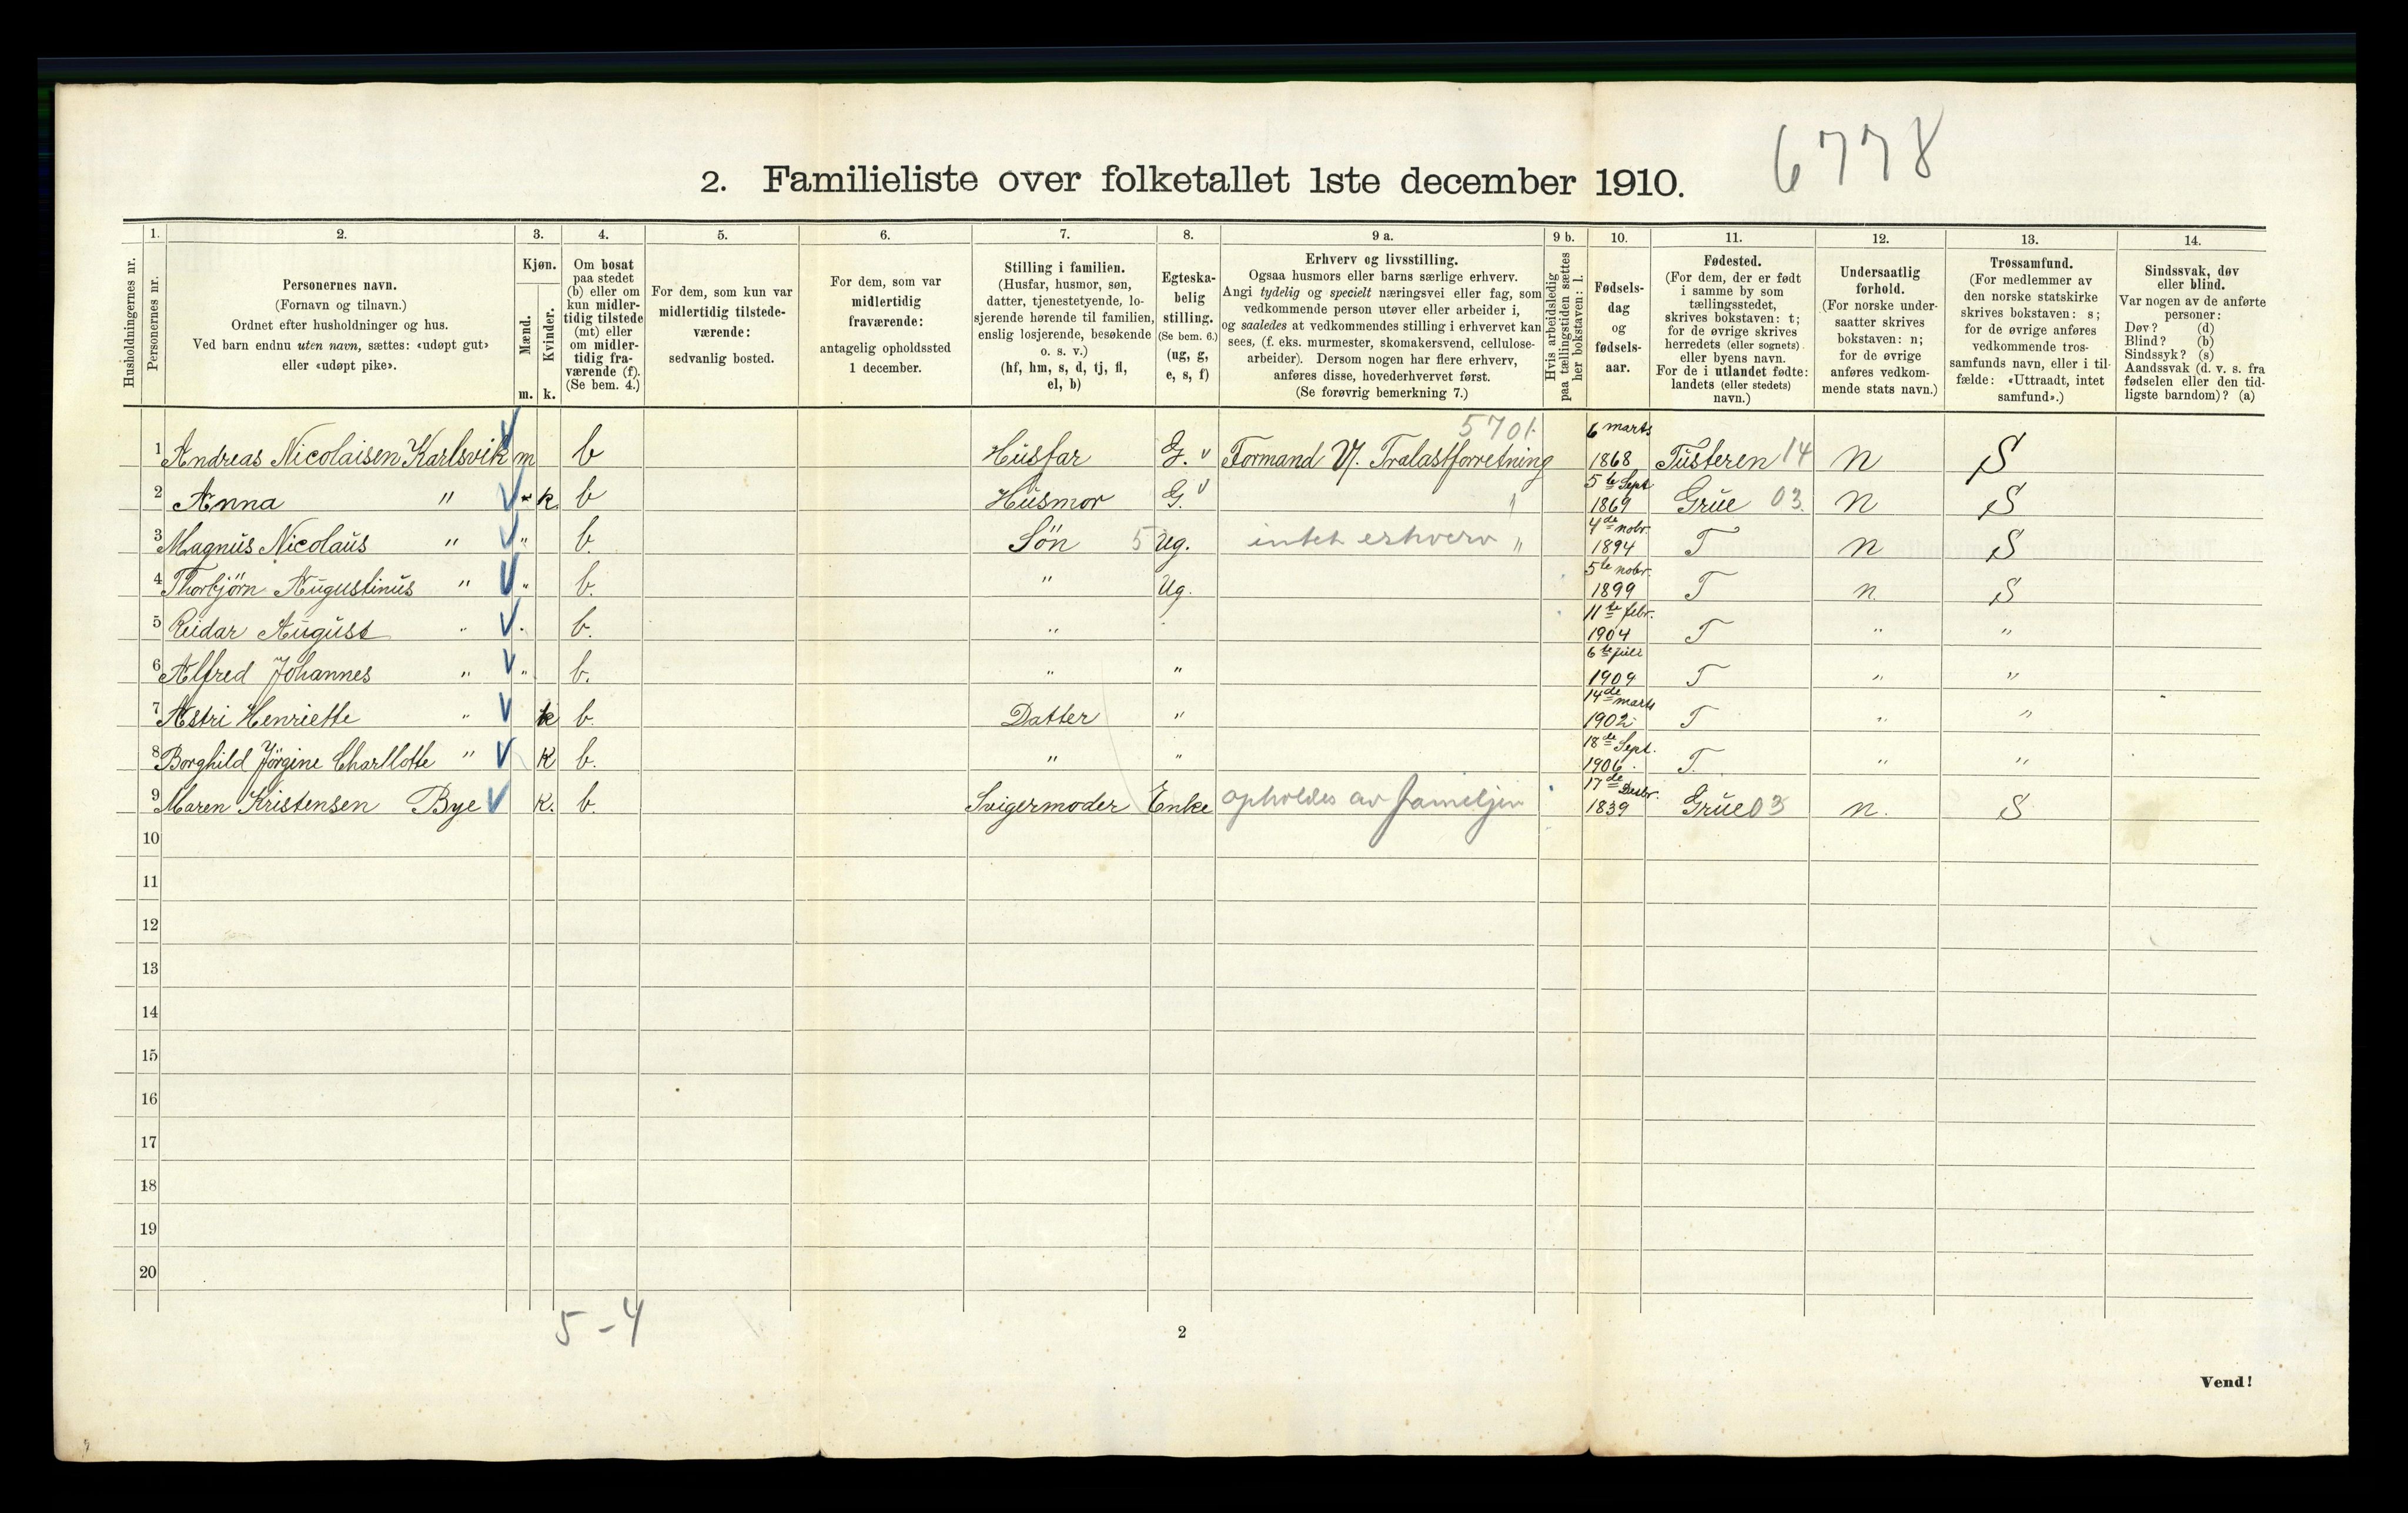 6778
2. Familieliste over folketallet 1ste december 1910.
Husholdningernes nr.
1. Personernes nr.
2. Personernes navn.
(Fornavn og tilnavn.)
Ordnet efter husholdninger og hus.
Ved barn endnu uten navn, sættes: «udøpt gut»
eller «udøpt pike».
3. Kjøn.
Mænd. m.
Kvinder. k.
4. Om bosat
paa stedet
(b) eller om
kun midler-
tidig tilstede
(mt) eller
om midler-
tidig fra-
værende (f).
(Se bem. 4.)
5. For dem, som kun var
midlertidig tilstede-
værende:
sedvanlig bosted.
6. For dem, som var
midlertidig
fraværende:
antagelig opholdssted
1 december.
7. Stilling i familien.
(Husfar, husmor, søn,
datter, tjenestetyende, lo-
sjerende hørende til familien,
enslig losjerende, besøkende
o. s. v.)
(hf, hm, s, d, tj, fl,
el, b)
8. Egteska-
belig
stilling.
(Se bem. 6.)
(ug, g,
e, s, f)
9 a. Erhverv og livsstilling.
Ogsaa husmors eller barns særlige erhverv.
Angi tydelig og specielt næringsvei eller fag, som
vedkommende person utøver eller arbeider i,
og saaledes at vedkommendes stilling i erhvervet kan
sees, (f. eks. murmester, skomakersvend, cellulose-
arbeider). Dersom nogen har flere erhverv,
anføres disse, hovederhvervet først.
(Se forøvrig bemerkning 7.)
9 b. Hvis arbeidsledig
paa tællingstiden sættes
her bokstaven: l.
10. Fødsels-
dag
og
fødsels-
aar.
11. Fødested.
(For dem, der er født
i samme by som
tællingsstedet,
skrives bokstaven: t;
for de øvrige skrives
herredets (eller sognets)
eller byens navn.
For de i utlandet fødte:
landets (eller stedets)
navn.)
12. Undersaatlig
forhold.
(For norske under-
saatter skrives
bokstaven: n;
for de øvrige
anføres vedkom-
mende stats navn.)
13. Trossamfund.
(For medlemmer av
den norske statskirke
skrives bokstaven: s;
for de øvrige anføres
vedkommende tros-
samfunds navn, eller i til-
fælde: «Uttraadt, intet
samfund».)
14. Sindssvak, døv
eller blind.
Var nogen av de anførte
personer:
Døv? (d)
Blind? (b)
Sindssyk? (s)
Aandssvak (d. v. s. fra
fødselen eller den tid-
ligste barndom)? (a)
1 Andreas Nicolaisen Karlsvik m b Husfar G. 5701 Formand V/. Tralastforretning 6 marts 1868 Tusteren 14 n S
2 Anna " k b Husmor G. " 5te Sept 1869 Grue 03. n S
3 Magnus Nicolaus " " b. Sön 5 Ug. intet erhverv " 4de nobr. 1894 T n S
4 Thorbjörn Augustinus " " b. " Ug. 5te nobr. 1899 T n. S
5 Reidar August " " b. " " 11te febr. 1904 T " "
6 Alfred Johannes " " b. " " 6te juli 1909 T " "
7 Astri Henriette " k b. Datter " 14de marts 1902 T " "
8 Borghild Jörgine Charllotte " k b. " " 18de Sept. 1906. T. " "
9 Maren Kristensen Bye k. b. Svigermoder Enke opholdes av familjen 17de Desbr. 1839 Grue 03 n. S
10
11
12
13
14
15
16
17
18
19
20
5-4
2
Vend!